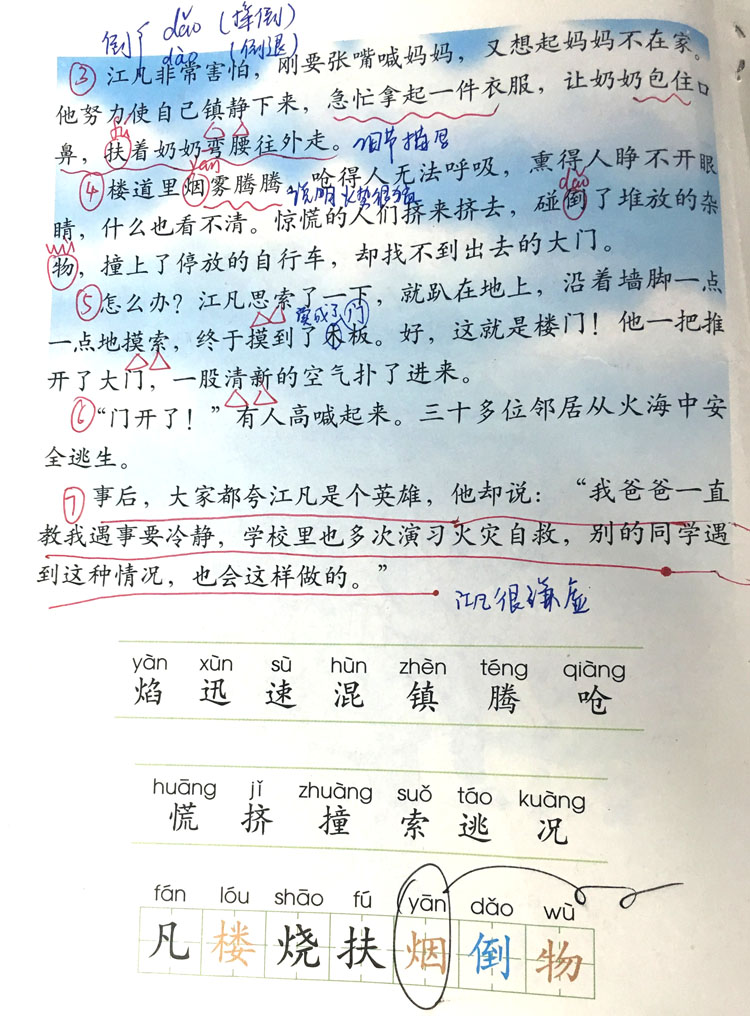 倒 dǎo (摔倒)
dào (倒退)
③江凡非常害怕，刚要张嘴喊妈妈，又想起妈妈不在家。
他努力使自己镇静下来，急忙拿起一件衣服，让奶奶包住口
fú
鼻，扶着奶奶弯腰往外走。细节描写
yān
④楼道里烟雾腾腾，呛得人无法呼吸，熏得人睁不开眼
说明火势很猛
dǎo
睛，什么也看不清。惊慌的人们挤来挤去，碰倒了堆放的杂
物，撞上了停放的自行车，却找不到出去的大门。
⑤怎么办？江凡思索了一下，就趴在地上，沿着墙脚一点
变成了门
一点地摸索，终于摸到了木板。好，这就是楼门！他一把推
开了大门，一股清新的空气扑了进来。
⑥“门开了！”有人高喊起来。三十多位邻居从火海中安
全逃生。
⑦事后，大家都夸江凡是个英雄，他却说：“我爸爸一直
教我遇事要冷静，学校里也多次演习火灾自救，别的同学遇
到这种情况，也会这样做的。”
江凡很谦虚
yàn xùn sù hùn zhèn téng qiàng
焰 迅 速 混 镇 腾 呛
huāng jǐ zhuàng suǒ táo kuàng
慌 挤 撞 索 逃 况
fán lóu shāo fú yān dǎo wù
凡 楼 烧 扶 烟 倒 物